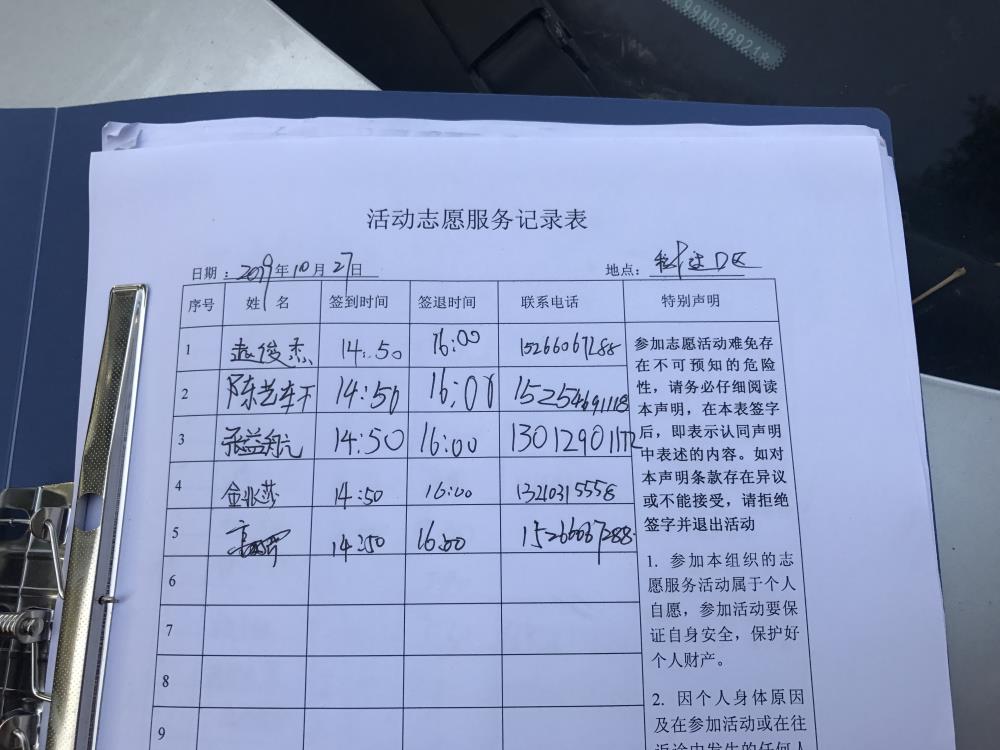 99N036921*
活动志愿服务记录表
日期：2019年10月27日 地点：
序号 姓名 签到时间 签退时间 联系电话 特别声明
1 赵俊杰 14:50 16:00 15266067288
2 14:50 16:00 15254691118
3 张益航 14:50 16:00 13012901172
4 14:50 16:00 13210315558
5 14:50 16:00 15266067288
6
7
8
9
参加志愿活动难免存
在不可预知的危险
性，请务必仔细阅读
本声明，在本表签字
后，即表示认同声明
中表述的内容。如对
本声明条款存在异议
或不能接受，请拒绝
签字并退出活动
1. 参加本组织的志
愿服务活动属于个人
自愿，参加活动要保
证自身安全，保护好
个人财产。
2. 因个人身体原因
及在参加活动或在往
返途中发生的任何人